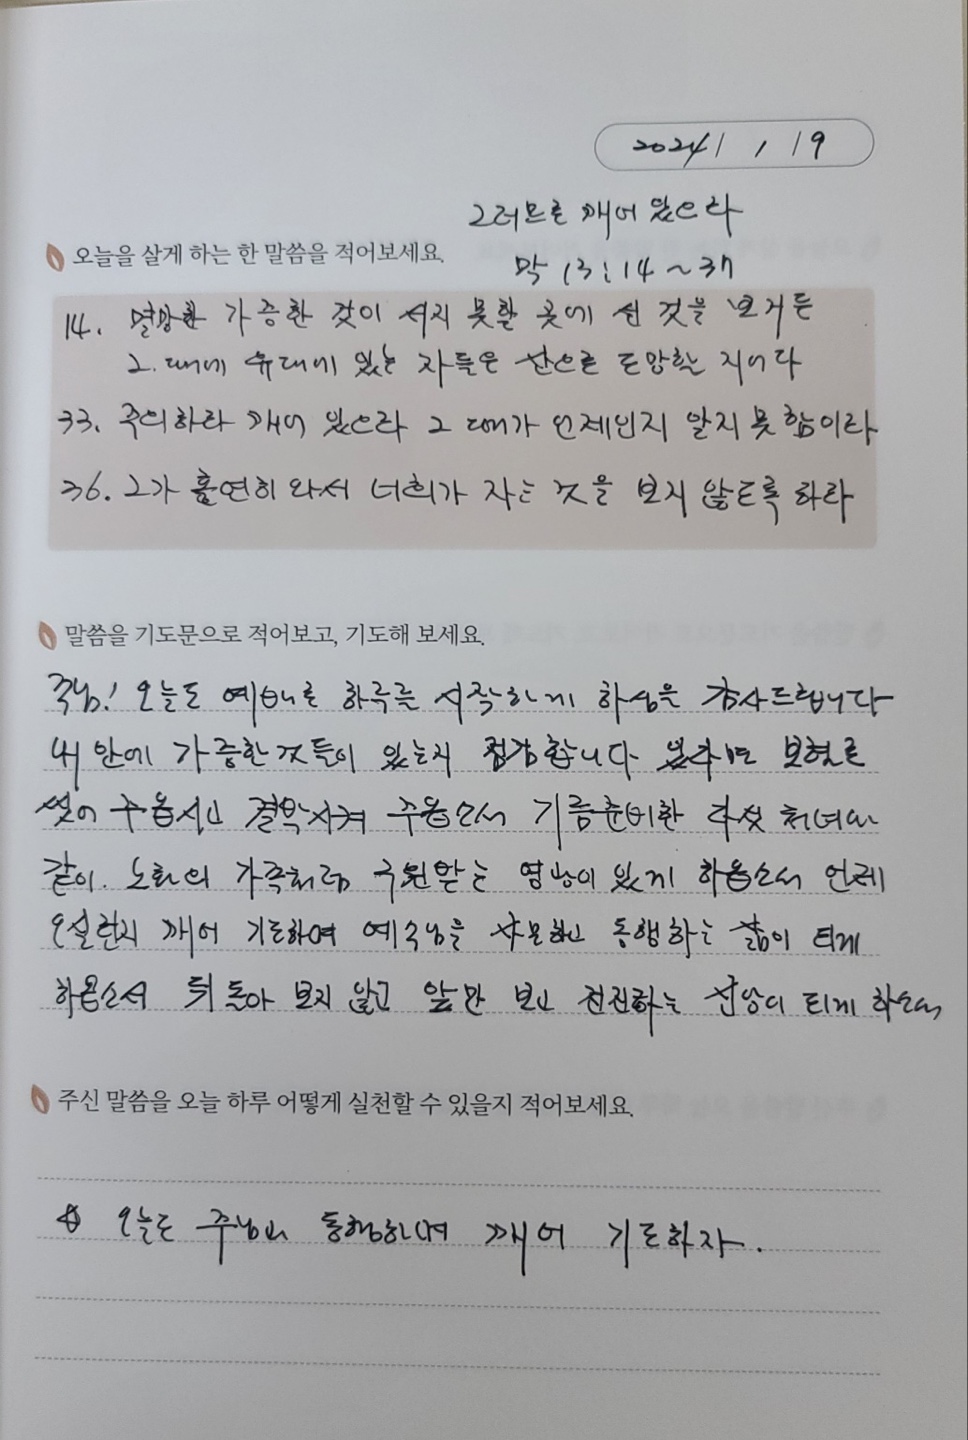 2024 / 1 / 19
그러므로 깨어 있으라
오늘을 살게 하는 한 말씀을 적어보세요.
막 13:14~37
14. 멸망할 가증한 것이 서지 못할 곳에 선 것을 보거든
그 때에 유대에 있는 자들은 산으로 도망할 지어다
33. 주의하라 깨어 있으라 그 때가 언제인지 알지 못함이라
36. 그가 홀연히 와서 너희가 자는 것을 보지 않도록 하라
말씀을 기도문으로 적어보고, 기도해 보세요.
주님! 오늘도 예배로 하루를 시작하게 하심을 감사드립니다
내 안에 가증한 것들이 있는지 점검합니다 있다면 보혈로
씻어 주옵시고 결박시켜 주옵소서 기름준비한 다섯 처녀와
같이. 노아의 가족처럼 구원받는 영광이 있게 하옵소서 언제
오실런지 깨어 기도하며 예수님을 사모하고 동행하는 삶이 되게
하옵소서 뒤 돌아 보지 않고 앞만 보고 전진하는 신앙이 되게 하소서
주신 말씀을 오늘 하루 어떻게 실천할 수 있을지 적어보세요.
오늘도 주님과 동행하며 깨어 기도하자.